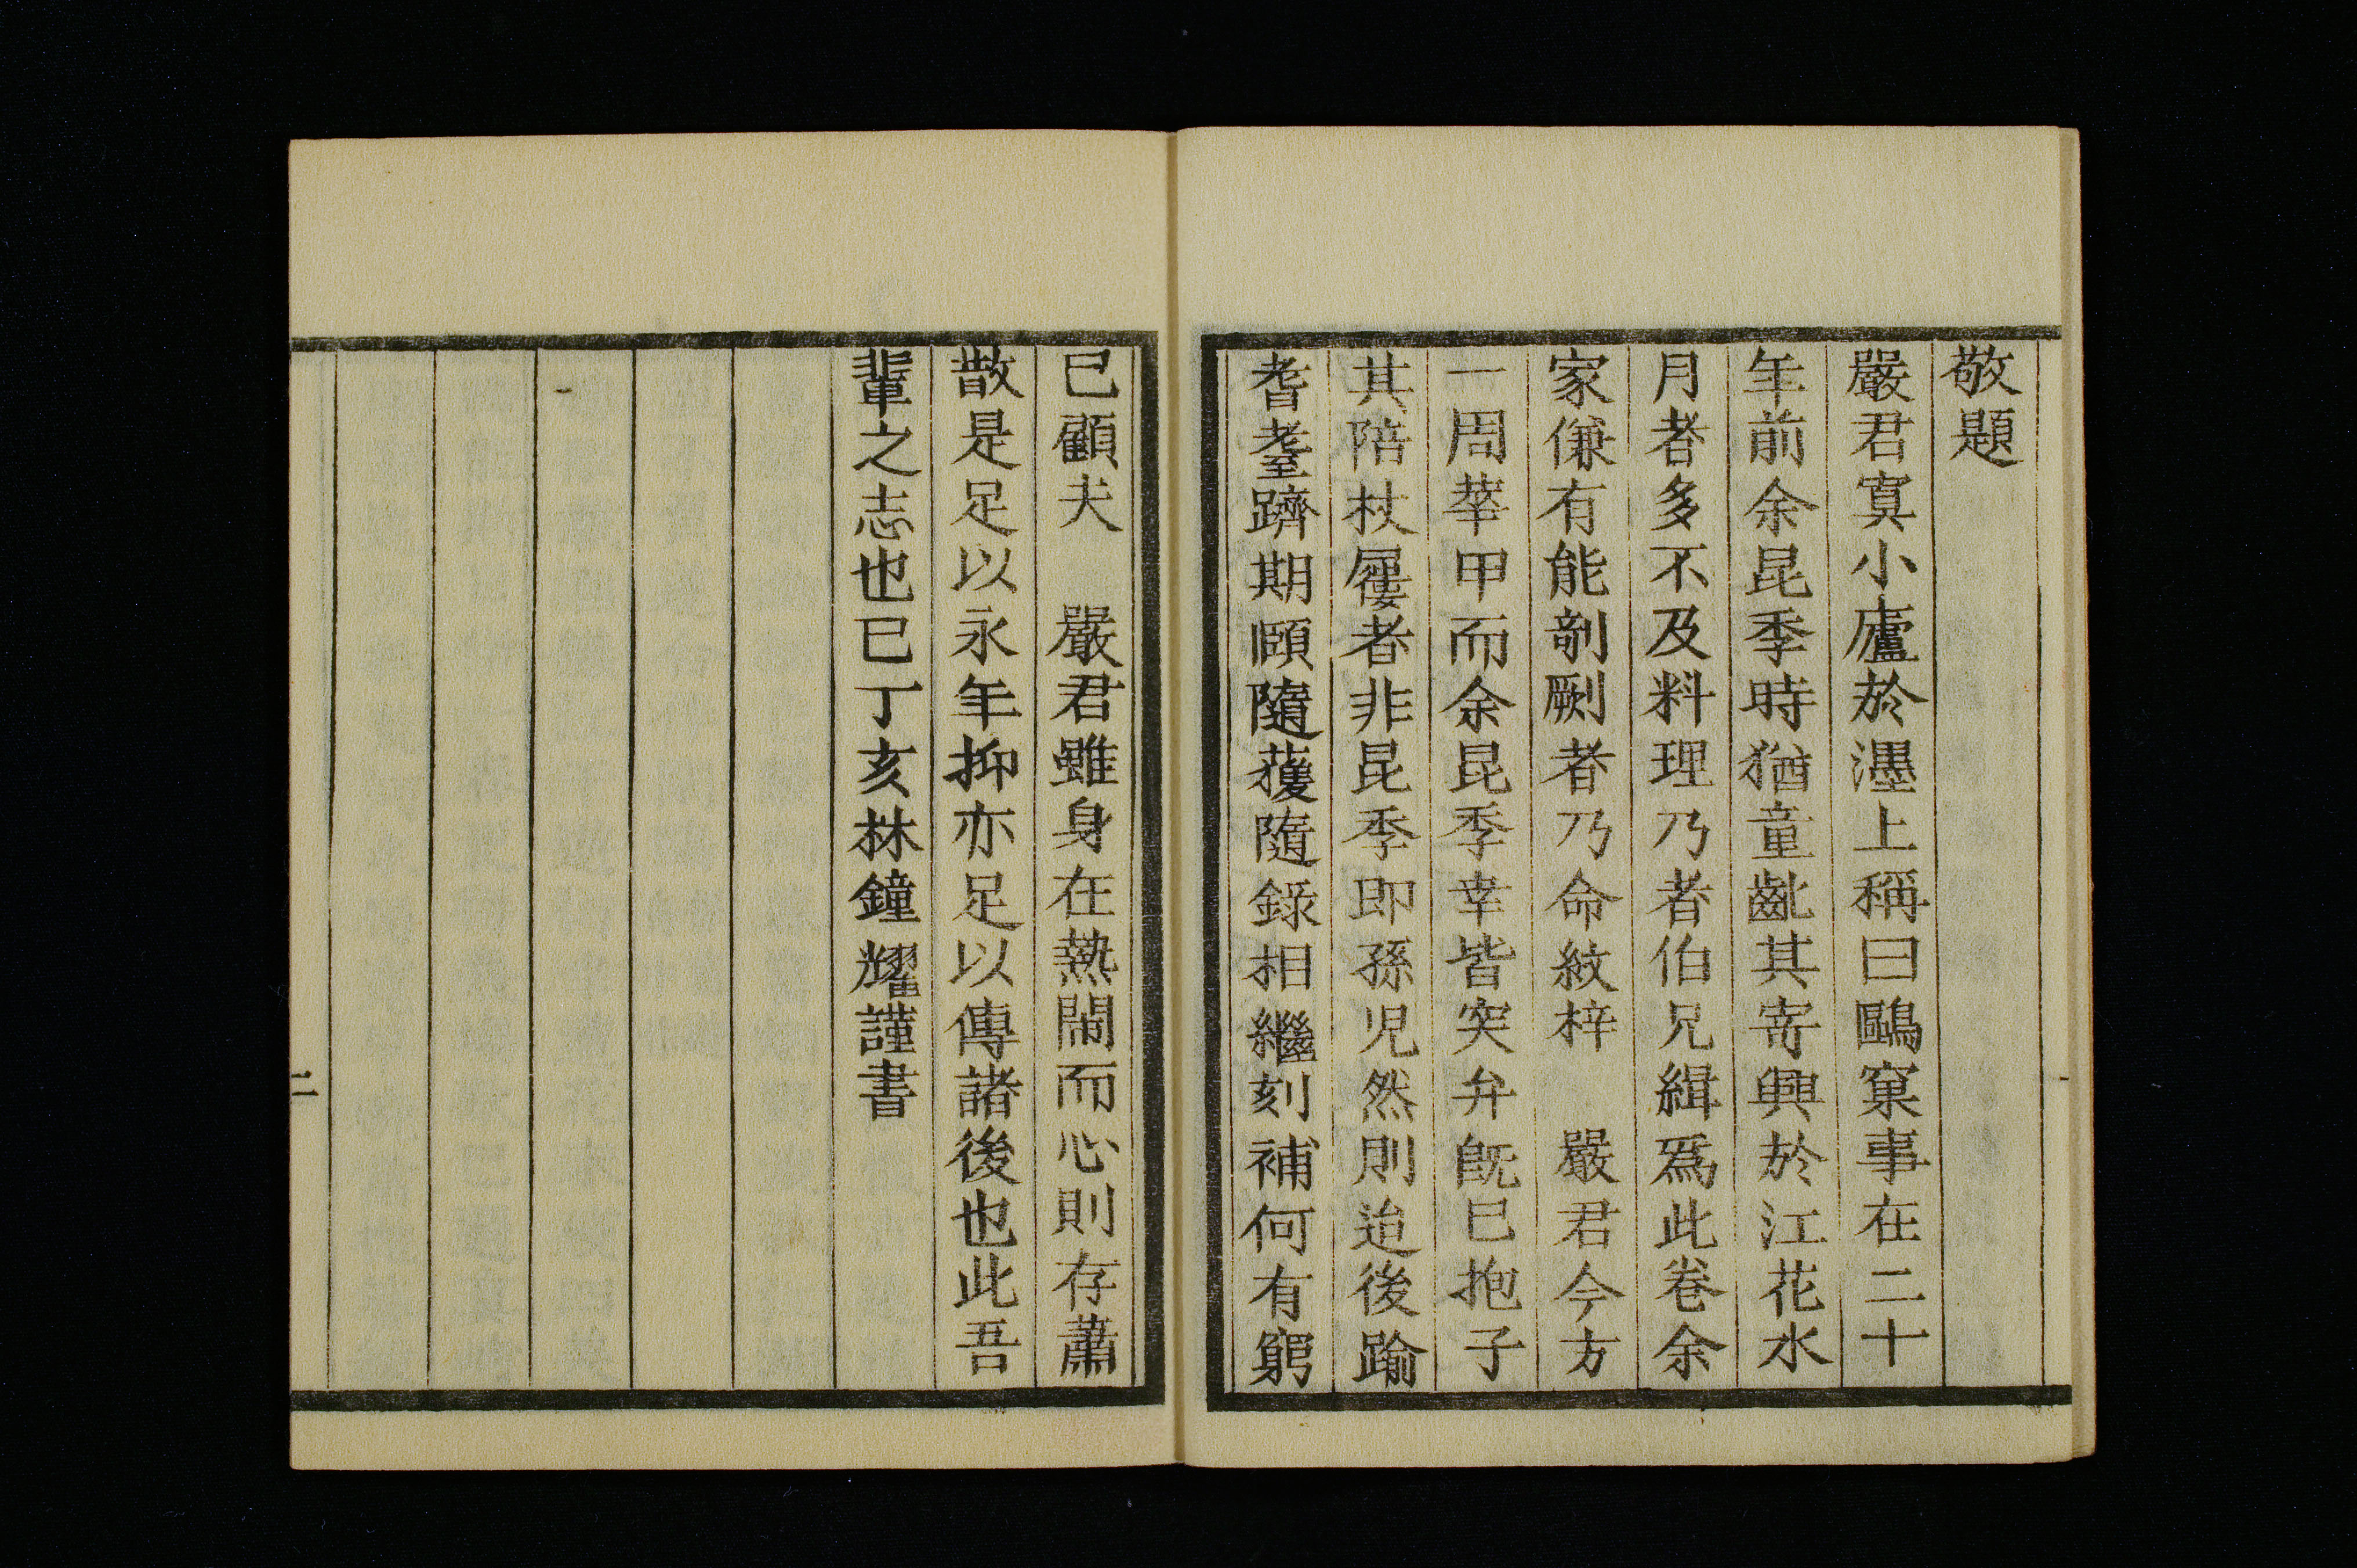 敬題
嚴君寘小廬於濹上稱曰鷗窠事在二十
年前余昆季時猶童齔其寄興於江花水
月者多不及料理乃者伯兄緝爲此卷余
家傔有能剞劂者乃命紋梓　嚴君今方
一周華甲而余昆季幸皆突弁既已抱子
其陪杖屨者非昆季即孫児然則迨後踰
耆耋躋期頤隨獲隨錄相繼刻補何有窮
已顧夫　嚴君雖身在熱鬧而心則存蕭
散是足以永年抑亦足以傳諸後也此吾
輩之志也已丁亥林鐘燿謹書
二